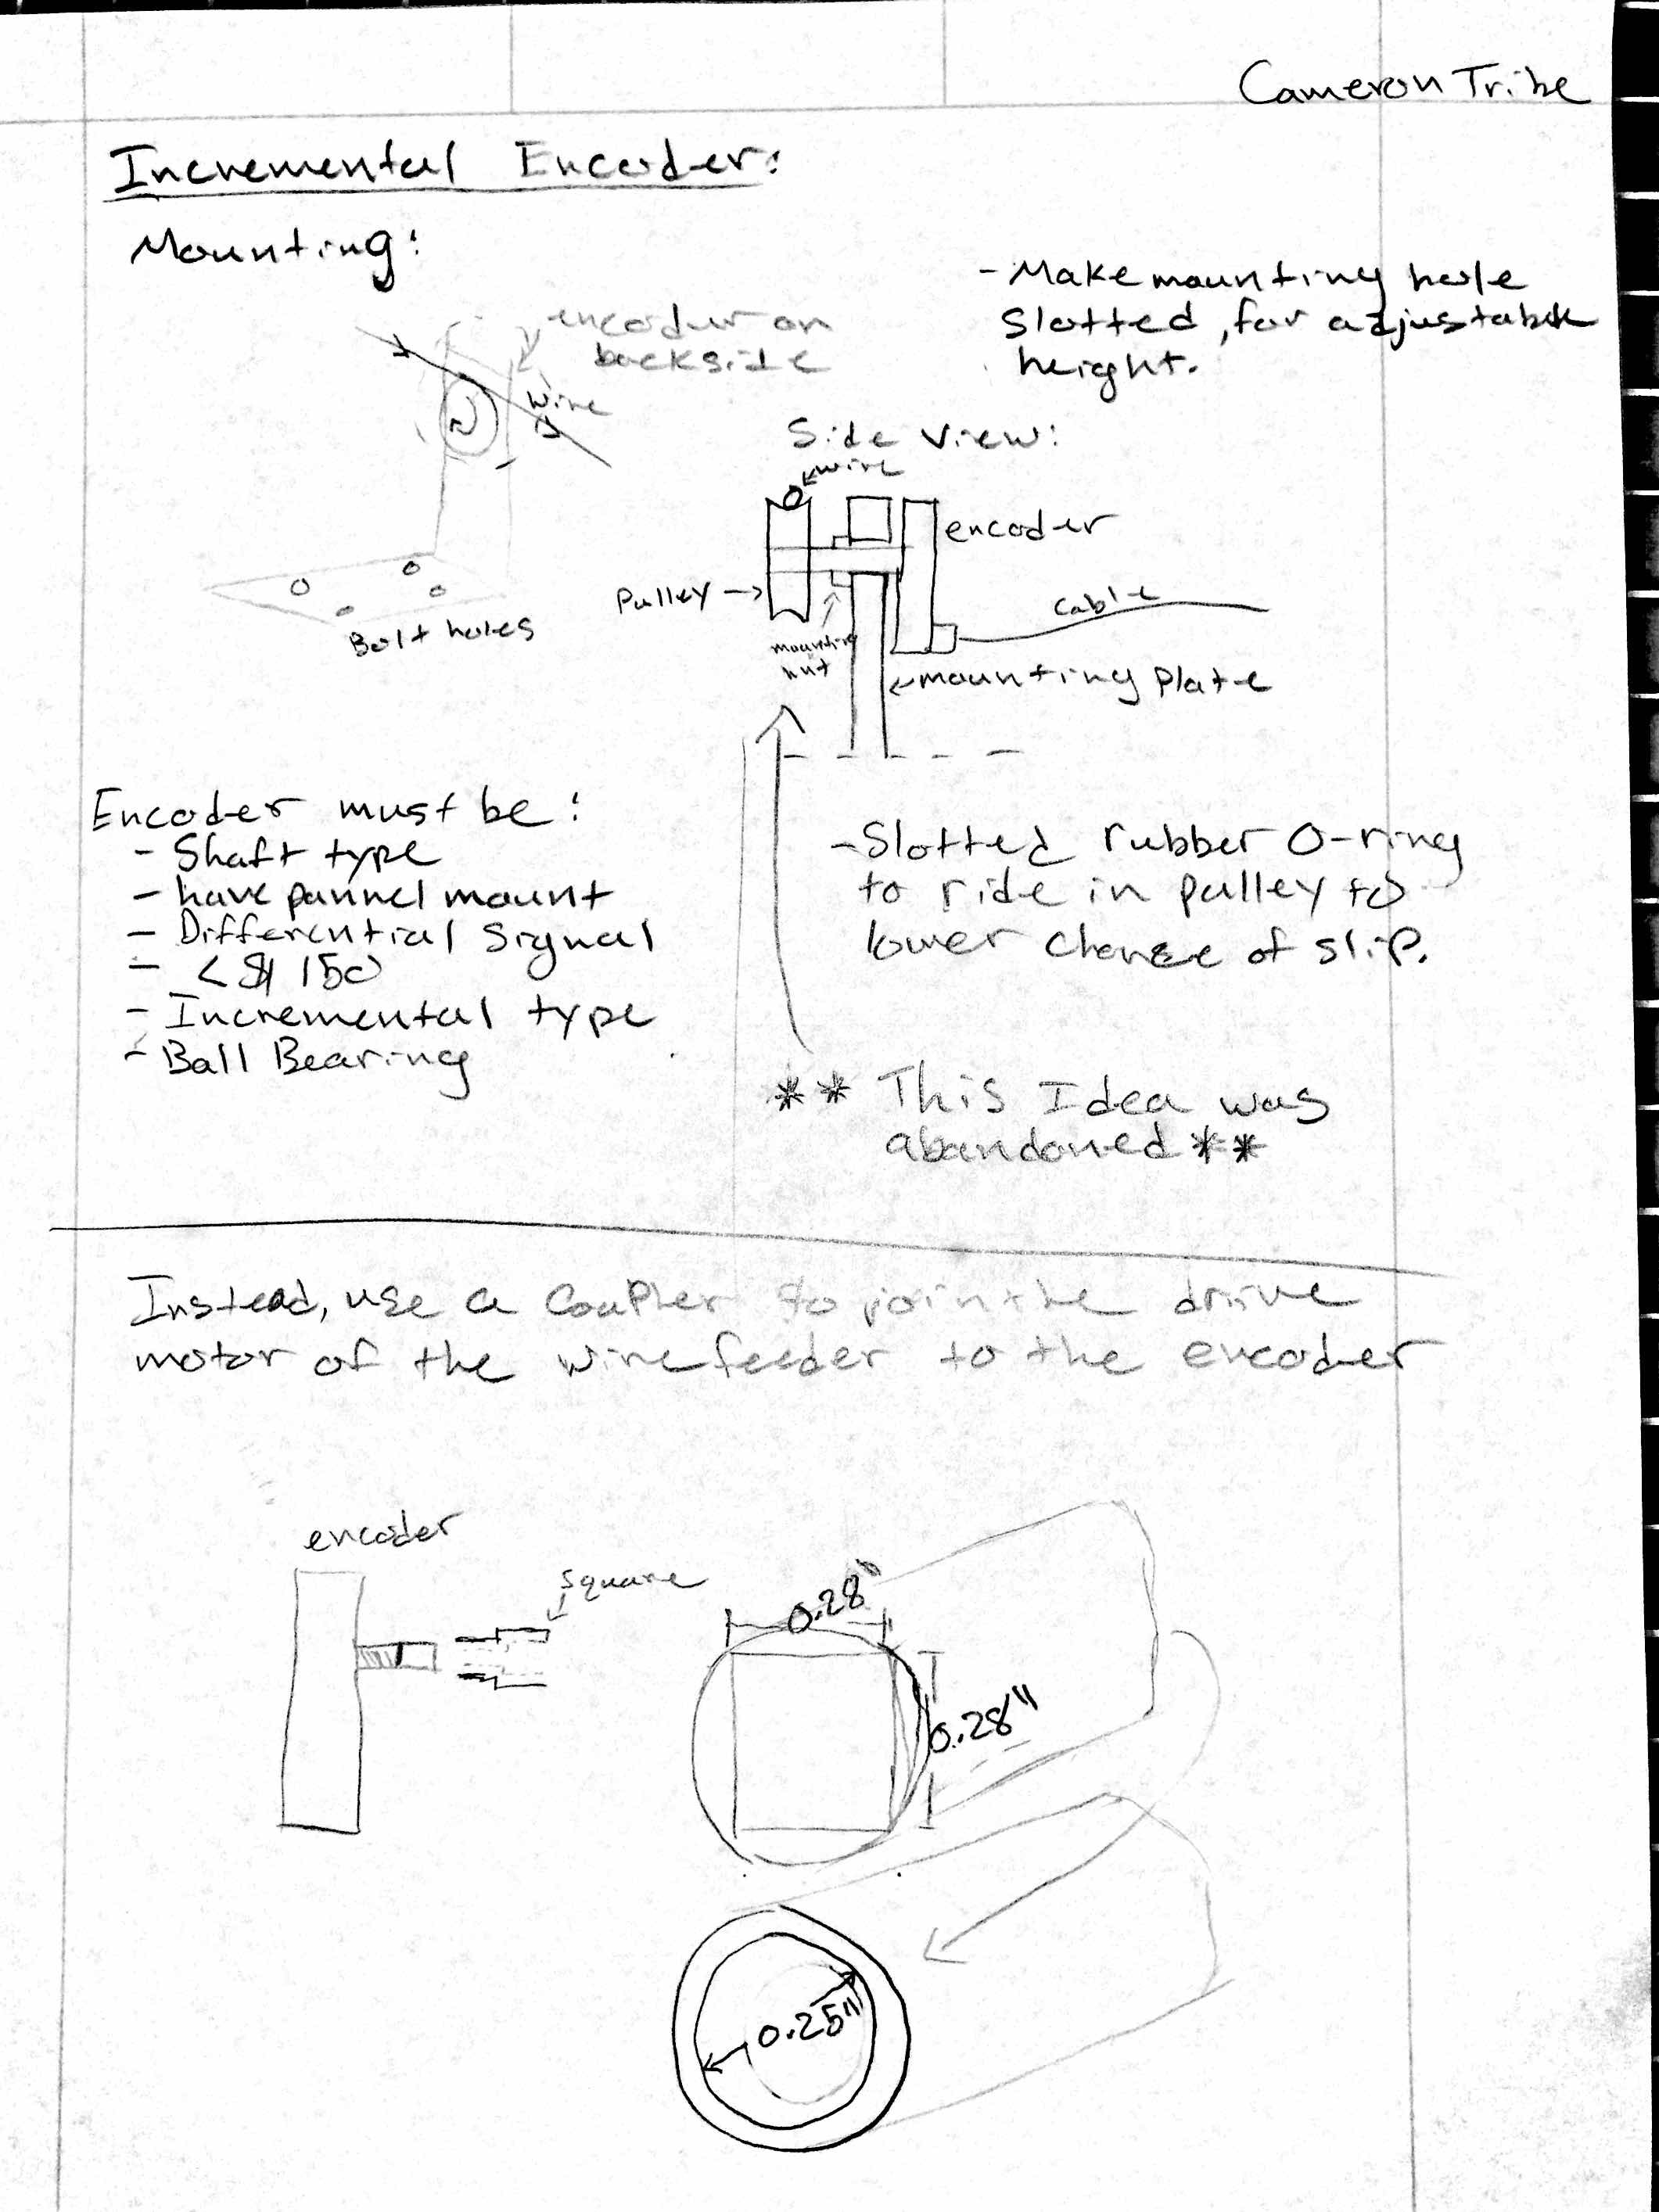 Cameron Tribe
Incremental Encoder:
Mounting:
- Make mounting hole
slotted, for adjustable
height.
encoder on
backside
wire
Bolt holes
Side View:
wire
encoder
Pulley
Cable
mounting
nut
mounting plate
Encoder must be:
- Shaft type
- have pannel mount
- Differential Signal
- < $150
- Incremental type
- Ball Bearing
- Slotted rubber O-ring
to ride in pulley to
lower chance of slip.
** This Idea was
abandoned **
Instead, use a Coupler to join the drive
motor of the wire feeder to the encoder
encoder
square
0.28"
0.28"
0.25"